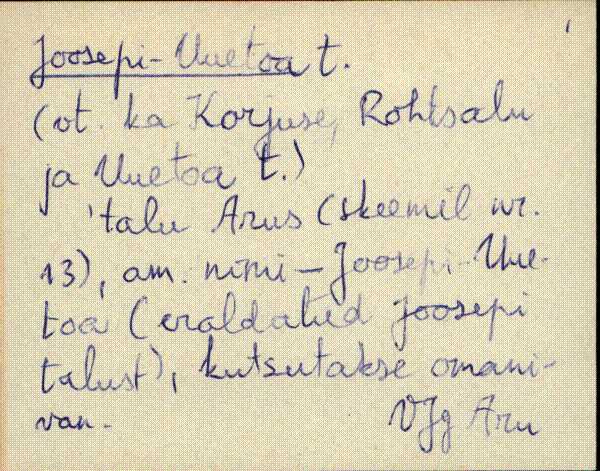 Joosepi-Uuetoa t.
(vt. ka Korjuse, Rohtsalu
ja Uuetoa t.)
'talu Arus (skeemil nr.
13), am. nimi – Joosepi-Uue-
toa (eraldatud Joosepi
talust), kutsutakse omani-
van.
VJg Aru